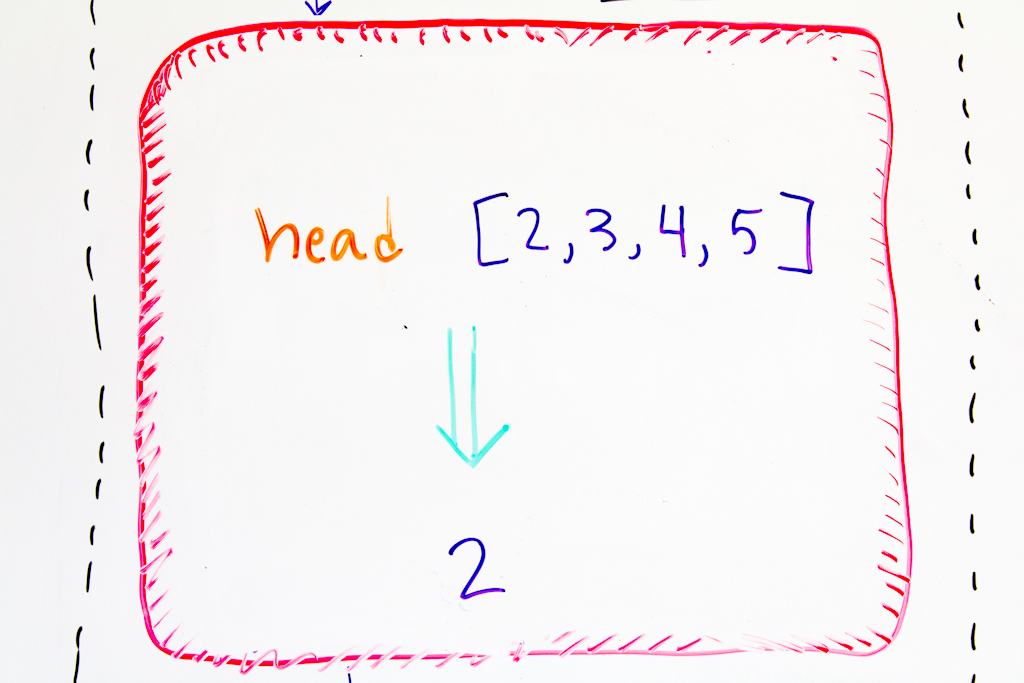 head [2,3,4,5]
2